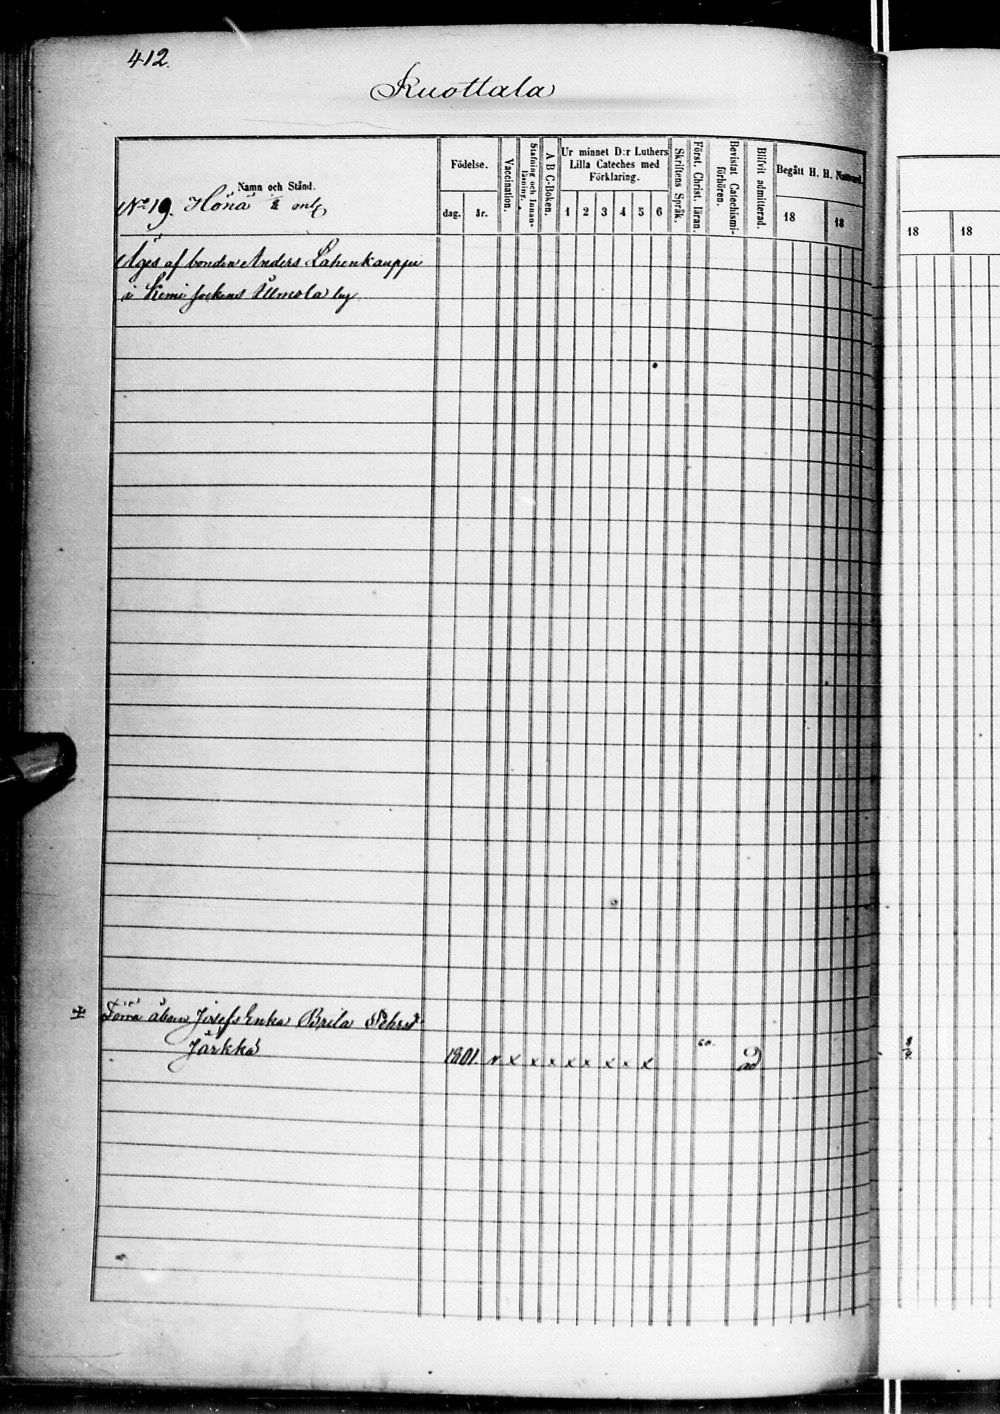 412.
Kuottala
Namn och Stånd.
Födelse.
dag.
år.
Vaccination.
Stafning och Innan-
läsning.
A B C-Boken.
Ur minnet D:r Luthers
Lilla Cateches med
Förklaring.
1 2 3 4 5 6
Skriftens Språk.
Först. Christ. läran.
Bevistat Catechismi-
förhören.
Blifvit admitterad.
Begått H. H. Nattvard.
18 18
18 18
No 19. Hönä
Äges af bonden Anders Lahenkauppi
i Kemi sockens by
Förra åboen Josefs Enka Brita Pehrsd
Järkkä 1801. v x x x x x x x x 60. ad